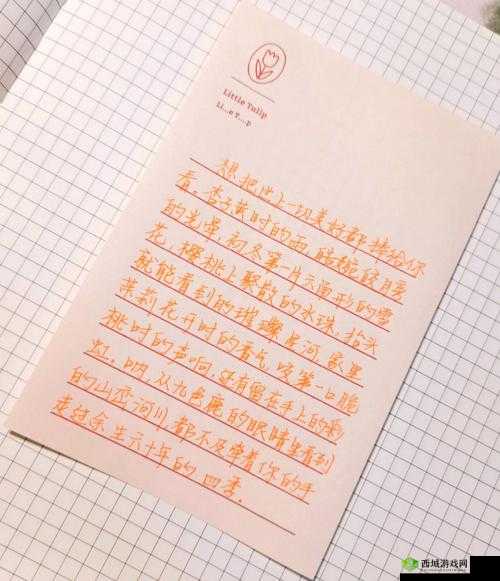 Little Tulip
Li...e T...p
想把世上一切美好都捧给你
看。杏子黄时的雨,暗楼段月
的光晕,初冬第一片六角形的雪
花,樱桃上聚散的水珠,抬头
就能看到的璀璨星河,家里
茉莉花开时的香气,咬第一口脆
桃时的声响,还有留在手上的彩
虹。呐,从九色鹿的眼睛里看到
的山峦河川,都不及牵着你的手
走过余生六十年的四季。
西域游戏网